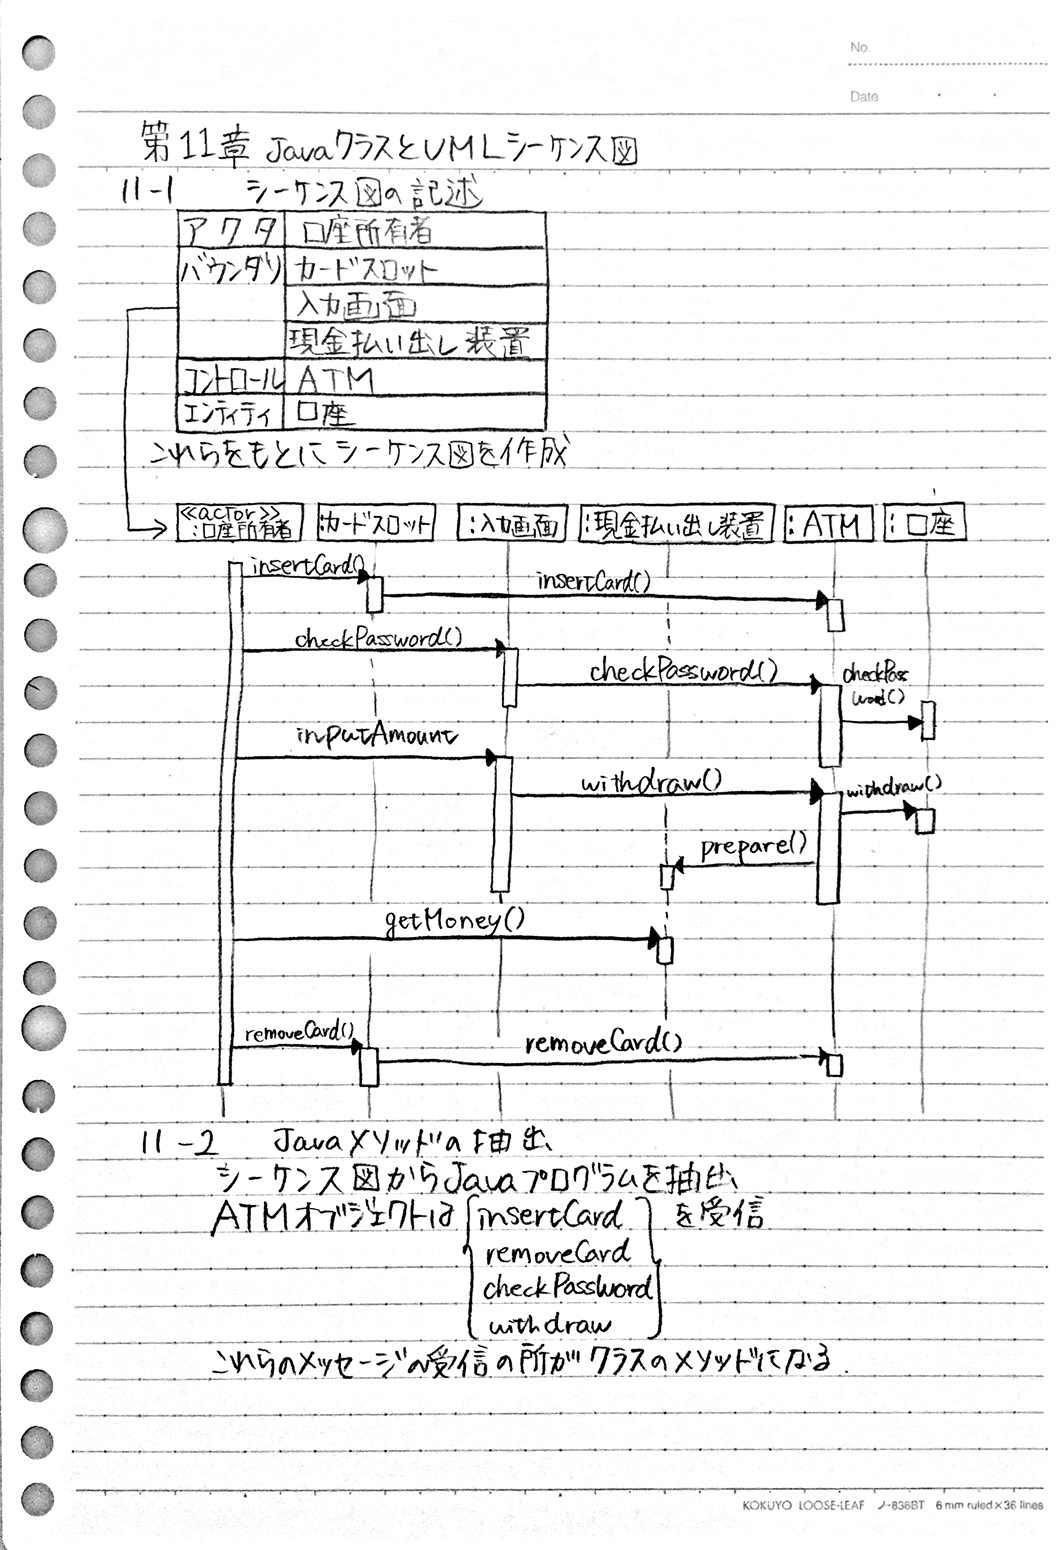 No.
Date
第11章 JavaクラスとUMLシーケンス図
11-1 シーケンス図の記述
アクタ 口座所有者
バウンダリ カードスロット
入力画面
現金払い出し装置
コントロール ATM
エンティティ 口座
これらをもとにシーケンス図を作成
<<actor>> :口座所有者 :カードスロット :入力画面 :現金払い出し装置 :ATM :口座
insertCard()
insertCard()
checkPassword()
checkPassword()
checkPass
word()
inputAmount
withdraw()
withdraw()
prepare()
getMoney()
removeCard()
removeCard()
11-2 Javaメソッドの抽出
シーケンス図からJavaプログラムを抽出
ATMオブジェクトは insertCard を受信
removeCard
checkPassword
withdraw
これらのメッセージの受信の所がクラスのメソッドになる.
KOKUYO LOOSE-LEAF ノ-836BT 6 mm ruled×36 lines